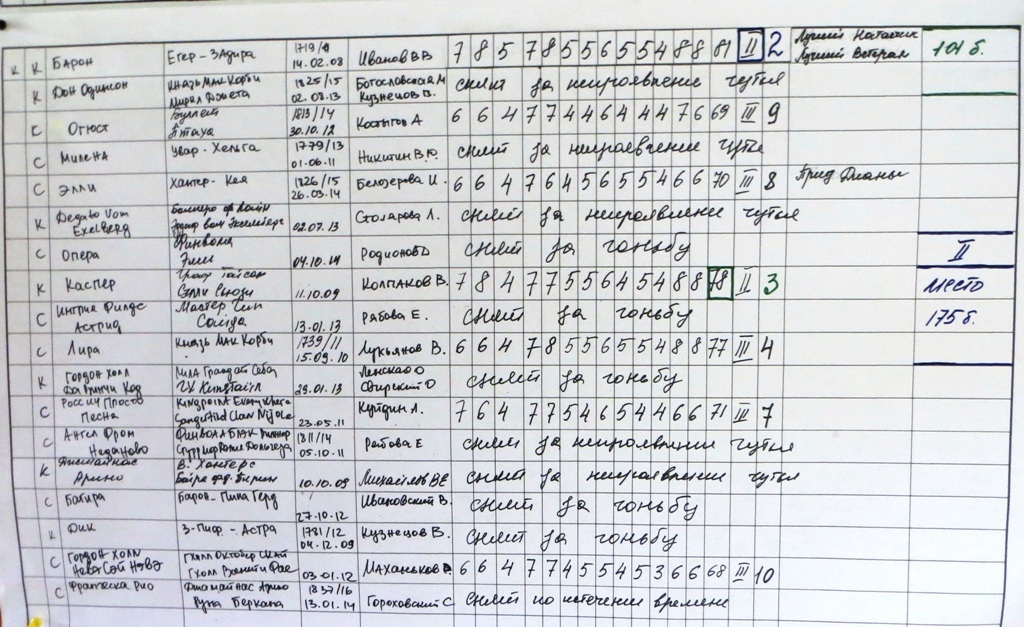 К К БАРОН Егер - Задира 1719/9 14.02.08 Иванов ВВ 7 8 5 7 8 5 5 6 5 5 4 8 8 81 II 2 Лучший Натасчик Лучший Ветеран 101 б.
К Дон Одинсон Князь Мак Корби 1825/15 02.08.13 Богословская М Кузнецов В. снят за непроявление чутья
К Огюст Буллет 1813/14 30.10.12 Костыгов А 6 6 4 7 7 4 4 6 4 4 4 7 6 69 III 9
С Милена Увар - Хельга 1779/13 01.06.11 Никитин В.Ю. снят за непроявление чутья
С Элли Хантер - Кея 1826/15 26.03.14 Белозерова И. 6 6 4 7 6 4 5 6 5 5 4 6 6 70 III 8 Приз Дианы
К Дедаво Vom Exelberg 02.07.13 Столарова Л. снят за непроявление чутья
С Опера Финвола Элли 04.10.14 Родионов D снят за гоньбу II
К Каспер Тайсон Элли Сьюзи 11.10.09 Колпаков В. 7 8 4 7 7 5 5 6 4 5 4 8 8 78 II 3 место
С Ингрия Филдс Астрид Мастер Чип Саида 13.01.13 Рябова Е. снят за гоньбу 175 б.
С Лира Князь Мак Корби 1739/11 15.09.10 Лукьянов В. 6 6 4 7 8 5 5 6 5 5 4 8 8 77 III 4
К Гордон Холл Да Винчи Код 29.01.13 Ленская О Свирский О снят за гоньбу
С Россич Просто Песня 23.05.11 Куядин Л. 7 6 4 7 7 5 4 6 5 4 4 6 6 71 III 7
С Ангел Фрон 1811/14 05.10.11 Рябова Е снят за непроявлении чутья
К Арино В. Хантерс 10.10.09 Михайлов ВЕ снят за непроявлении чутья
С Багира Барон - Пина Герд 27.10.12 Ивановский В. снят за гоньбу
К Дик З-Пиф - Астра 1781/12 04.12.09 Кузнецов В. снят за гоньбу
С Гордон Холл Нева Сэй Нэва 03.01.12 Маханьков 6 6 4 7 7 4 5 5 4 5 3 6 6 68 III 10
С Франческа Рио Руна Беркана 1837/16 13.01.14 Гороховский С снят по истечении времени